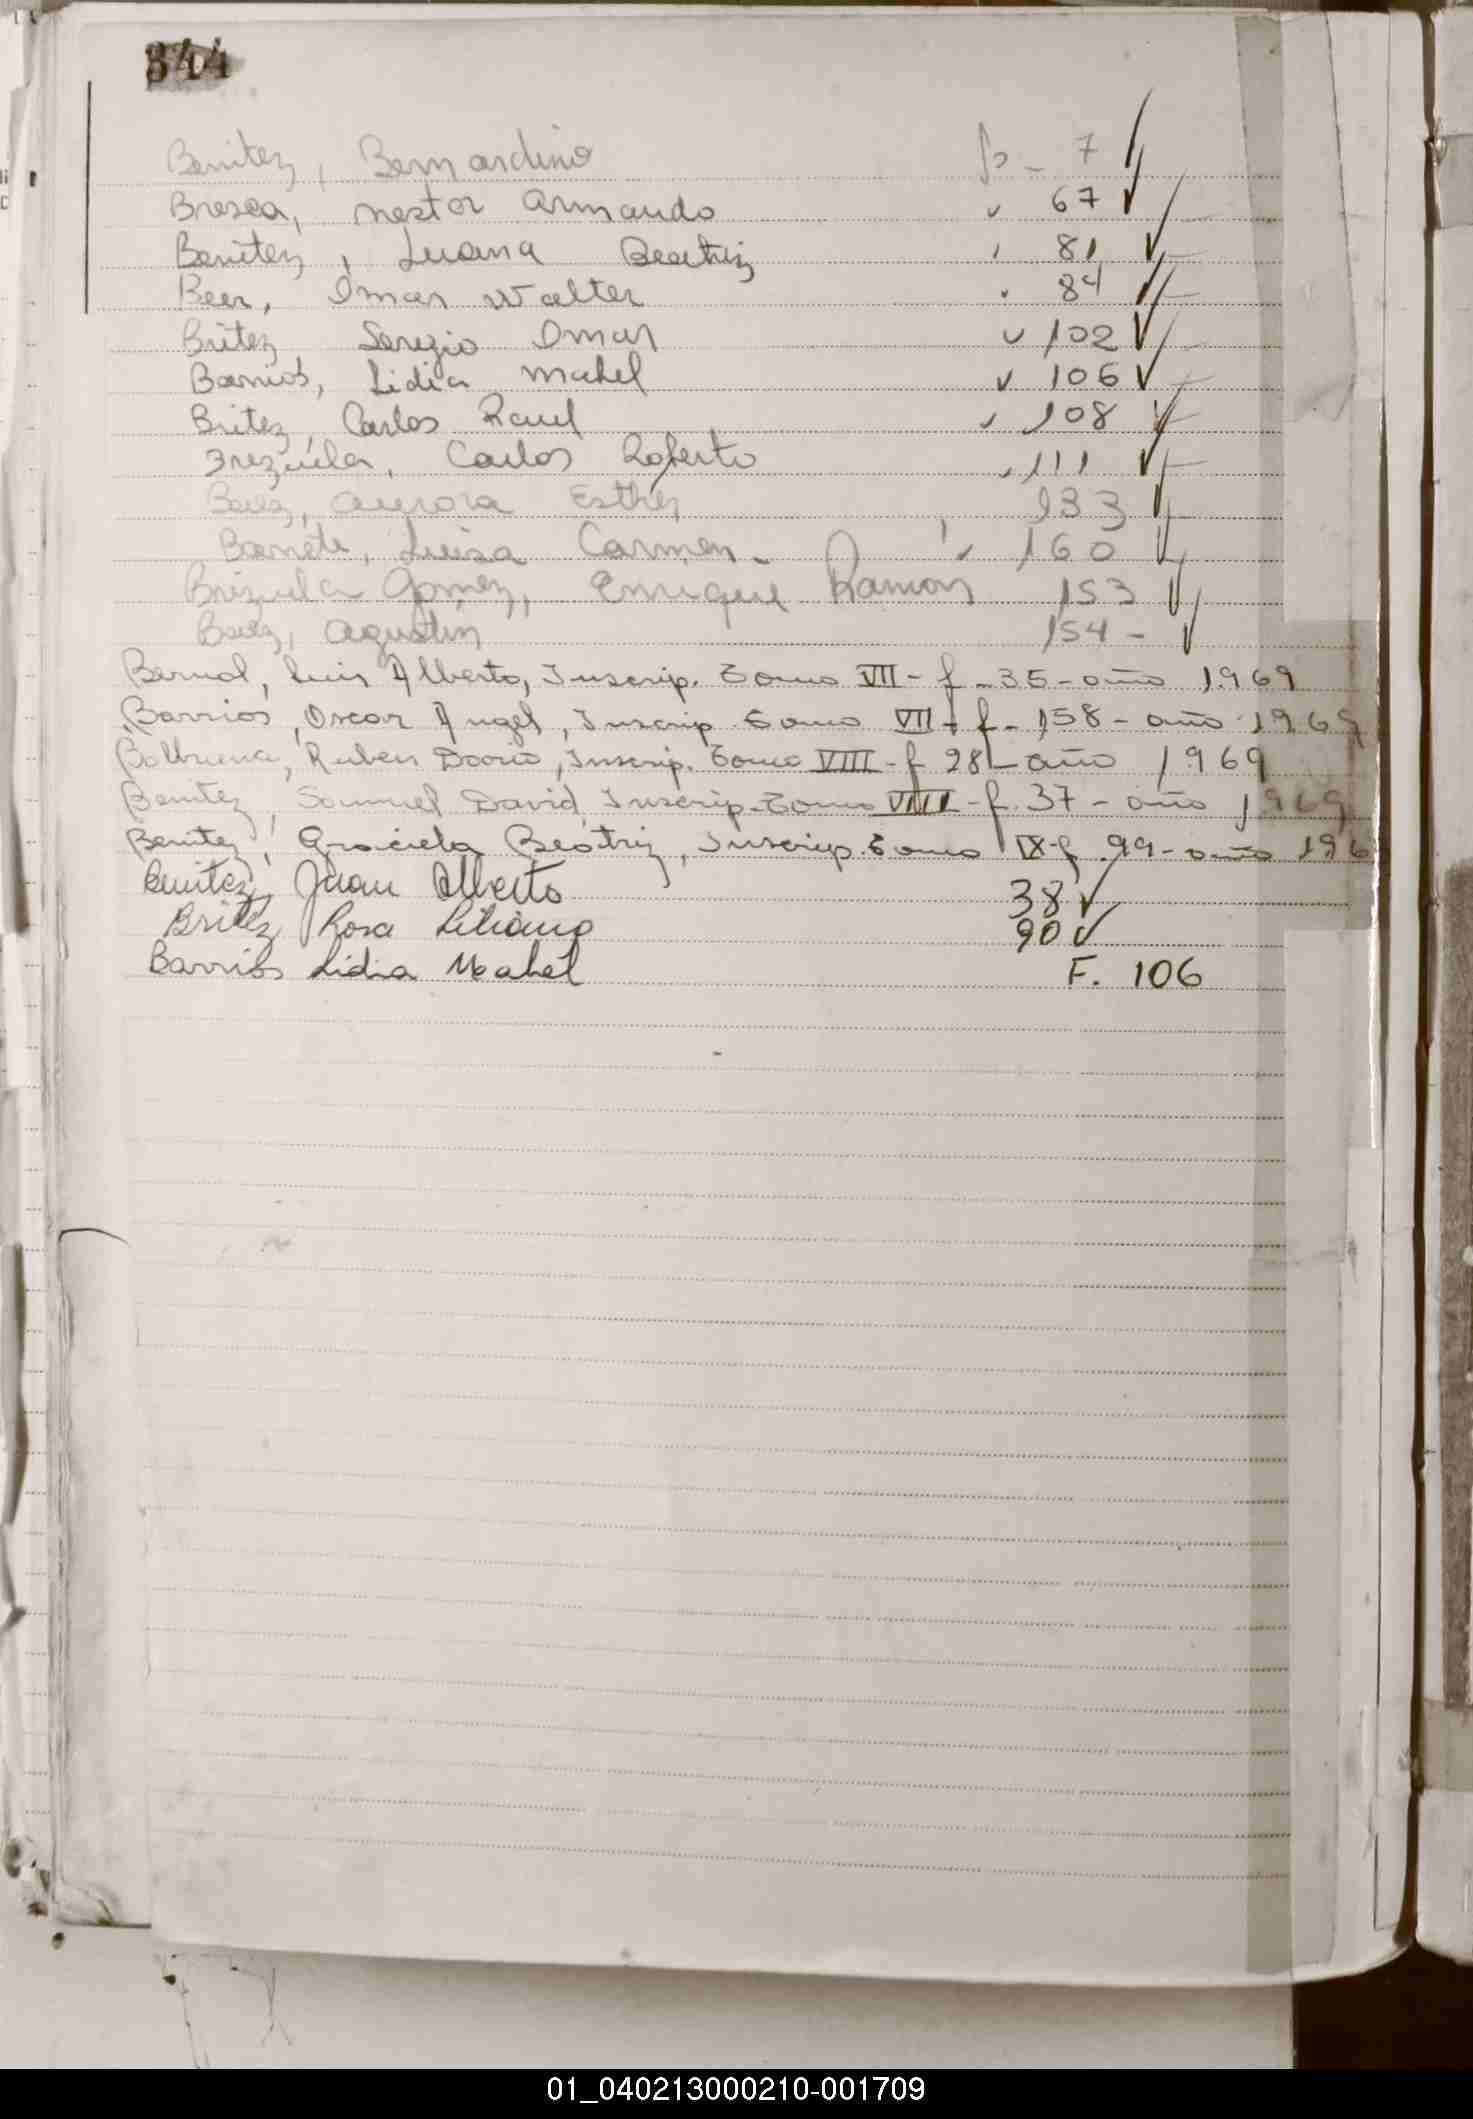 344
Benitez, Bernardino fs - 7
Bresca, Nestor Armando 67
Benitez, Luana Beatriz 81
Beer, Omar Walter 84
Britez Sergio Omar 102
Barrios, Lidia Mabel 106
Britez, Carlos Raul 108
Brezuela, Carlos Roberto 111
Baez, Aurora Esther 133
Barrete, Luisa Carmen. 160
Brizuela Gomez, Enrique Ramon 153
Baez, Agustin 154 -
Bernal, Luis Alberto, Inscrip. Tomo VII - f - 35 - año 1969
Barrios, Oscar Angel, Inscrip. Tomo VII - f - 158 - año 1969
Balbuena, Ruben Dario, Inscrip. Tomo VIII - f 28 - año 1969
Benitez, Samuel David, Inscrip. Tomo VIII - f. 37 - año 1969
Benitez, Graciela Beatriz, Inscrip. Tomo IX - f 99 - año 196
Benitez, Juan Alberto 38
Britez Rosa Liliana 90
Barrios Lidia Mabel F. 106
01_040213000210-001709